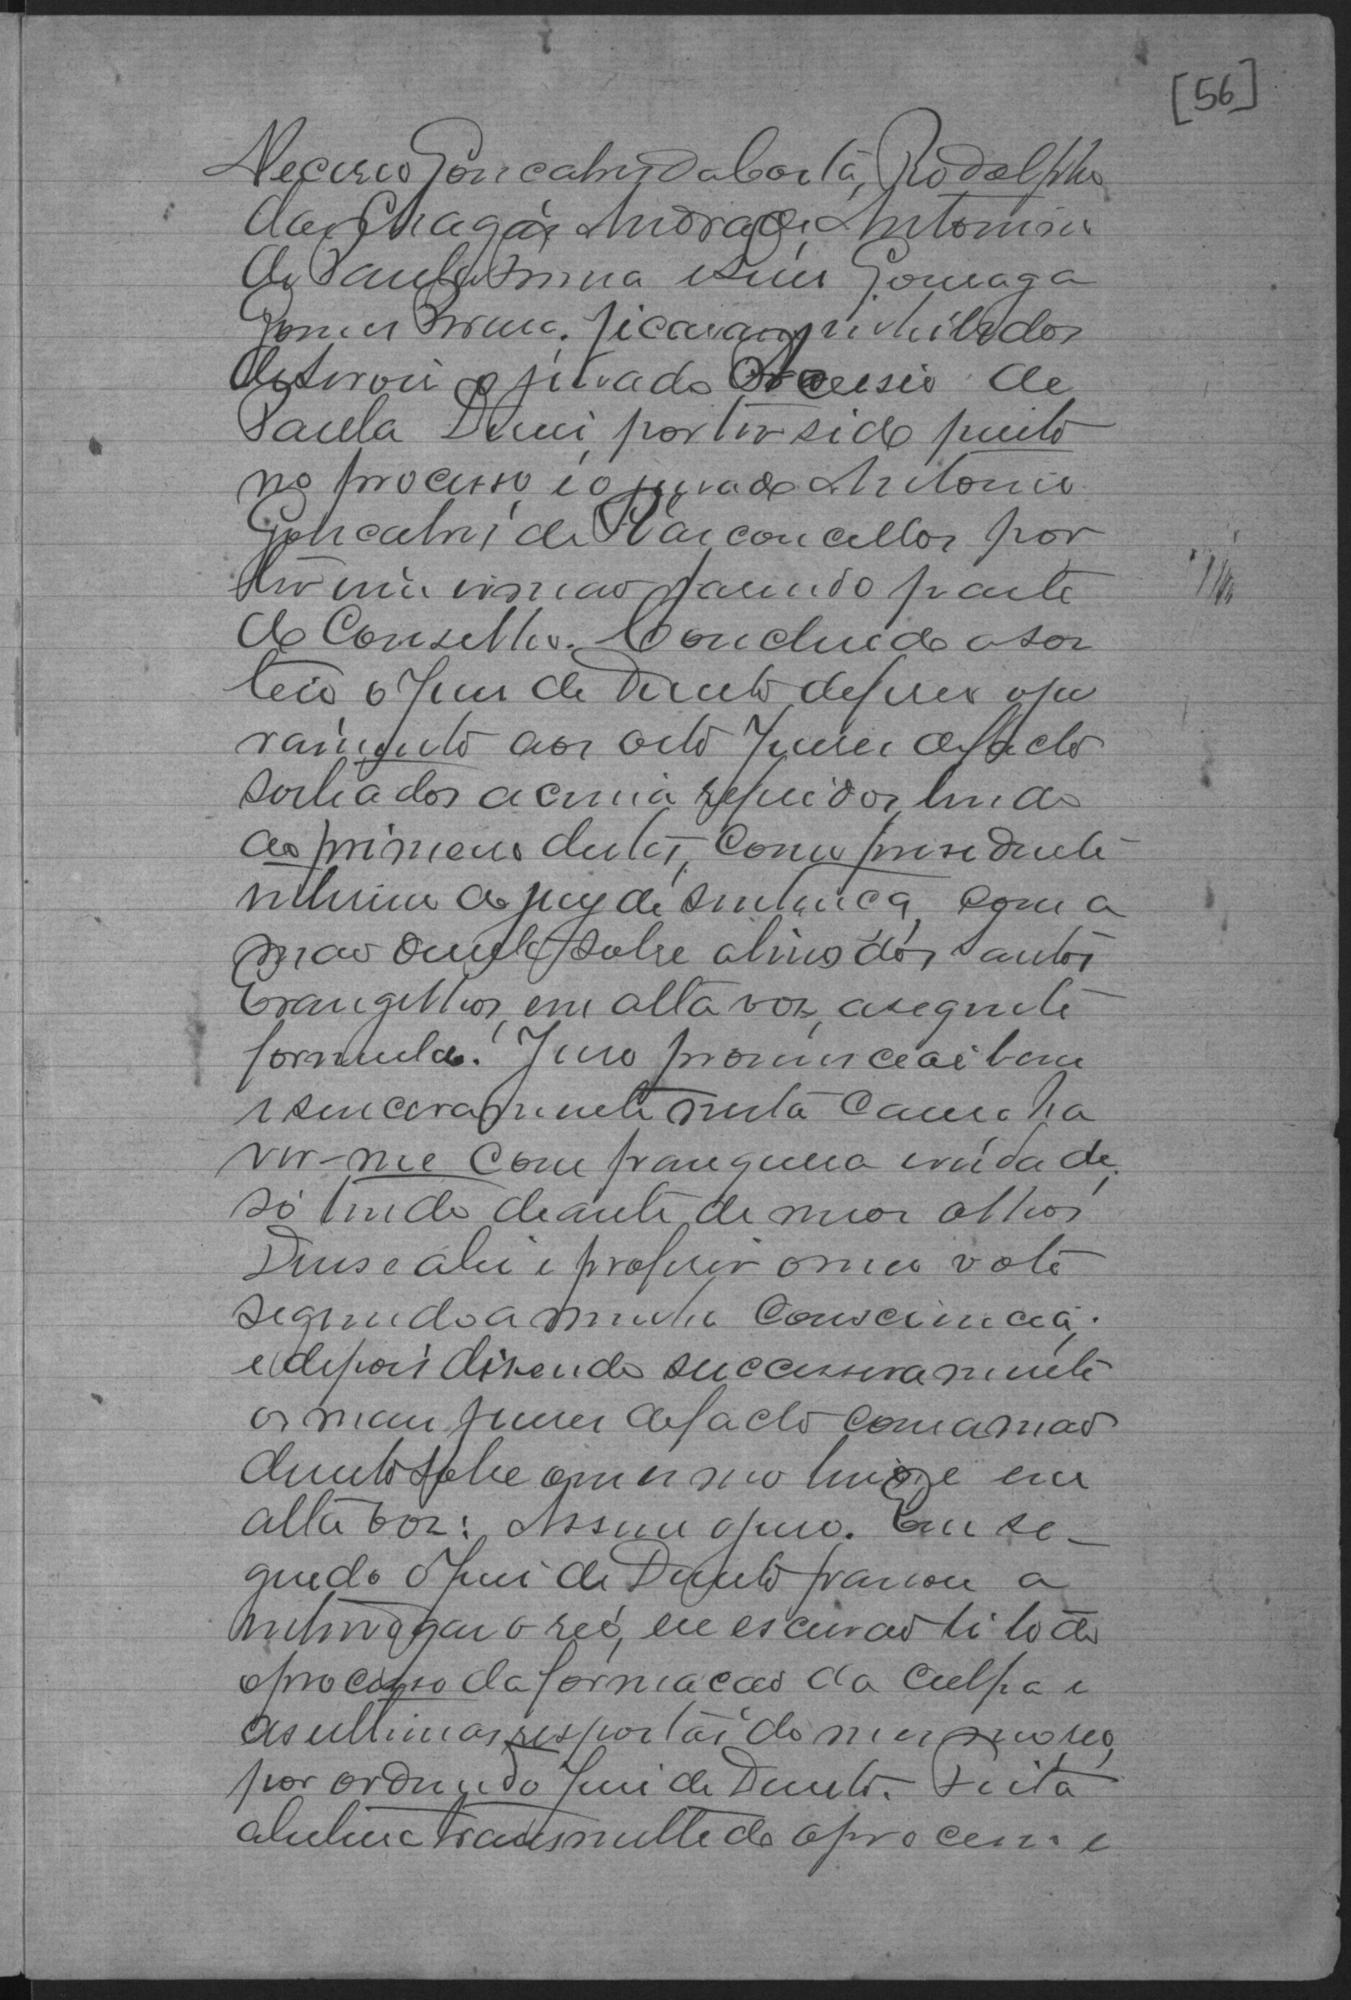 [56]
Gonçalves da Costa, Rodolpho
das Chagas Andrade, Antonio
de Paula Lima e Luis Gonzaga
Gomes ficaram inhibidos
de servir o jurado de
Paula Diniz por ter sido perito
no processo, e o jurado Antonio
Gonçalves de Vasconcellos por
ter um irmao fazendo parte
do Conselho. Concluido o sor
teio o Juiz de Direito deferio o ju
ramento aos oito Juizes de facto
sorteados acima referidos, lendo
o primeiro delles, como presidente
interino do jury de sentença, com a
mao direita sobre o livro dos Santos
Evangelhos, em alta voz, a seguinte
formula: Juro pronunciar bem
e sinceramente nesta causa ha
ver-me com franqueza e verdade,
só tendo deante de meus olhos
Deus e a lei e proferir o meu voto
segundo a minha Consciencia;
e depois dizendo successivamente
os mais Juizes de facto com a mao
direita sobre o mesmo livro e em
alta voz: Assim o juro. Em se-
guida o Juiz de Direito passou a
interrogar o reo, eu escrivao li todo
o processo da formacao da culpa e
as ultimas respostas do mesmo reo,
por ordem do Juiz de Direito. Feita
a leitura o processo e